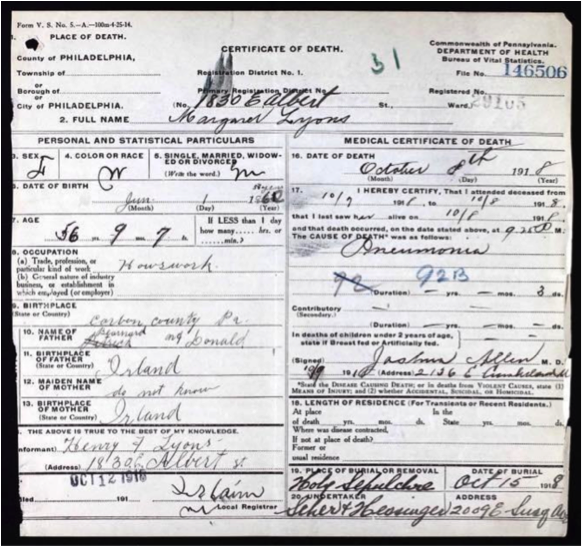 Form V. S. No. 5.—A.—100m-4-25-14.
1. PLACE OF DEATH.
County of PHILADELPHIA,
Township of
or
Borough of
or
City of PHILADELPHIA,
CERTIFICATE OF DEATH.
Registration District No. 1.
Primary Registration District No.
31
Commonwealth of Pennsylvania.
DEPARTMENT OF HEALTH
Bureau of Vital Statistics.
File No. 146506
Registered No.
(No. 1830 E albert St., Ward,
2. FULL NAME Margaret Lyons
PERSONAL AND STATISTICAL PARTICULARS
3. SEX F
4. COLOR OR RACE W
5. SINGLE, MARRIED, WIDOWED OR DIVORCED
(Write the word.) M
6. DATE OF BIRTH
Jun. 1
(Month) (Day) (Year)
7. AGE
56 yrs. 9 mos. 7 ds.
If LESS than 1 day
how many..... hrs. or
......min.?
8. OCCUPATION
(a) Trade, profession, or
particular kind of work Howswork
(b) General nature of industry
business, or establishment in
which employed (or employer)
9. BIRTHPLACE
(State or Country) Carbon County Pa.
10. NAME OF
FATHER Bearnard Mc Donald
11. BIRTHPLACE
OF FATHER
(State or Country) Irland
12. MAIDEN NAME
OF MOTHER do not know
13. BIRTHPLACE
OF MOTHER
(State or Country) Irland
THE ABOVE IS TRUE TO THE BEST OF MY KNOWLEDGE.
(Informant) Henry F Lyons
(Address) 1830 E Albert st
OCT 12 1918
Filed 191
Local Registrar
MEDICAL CERTIFICATE OF DEATH
16. DATE OF DEATH
October 8th 1918
(Month) (Day) (Year)
17. I HEREBY CERTIFY, That I attended deceased from
10/7 1918, to 10/8 1918.
that I last saw her alive on 10/8 1918
and that death occurred, on the date stated above, at M.
The CAUSE OF DEATH* was as follows:
Pneumonia
92 92B
(Duration) — yrs. — mos. 3 ds.
Contributory
(Secondary.)
(Duration) — yrs. — mos. — ds.
In deaths of children under 2 years of age,
state if Breast fed or Artificially fed.
(Signed) Joshua Allen M. D.
10/9 1918 (Address) 2136 E Cumberland St
*State the DISEASE CAUSING DEATH; or in deaths from VIOLENT CAUSES, state (1)
MEANS OF INJURY; and (2) whether ACCIDENTAL, SUICIDAL, OR HOMICIDAL.
18. LENGTH OF RESIDENCE (For Transients or Recent Residents.)
At place In the
of death yrs. mos. ds. State yrs. mos. ds.
Where was disease contracted,
If not at place of death?
Former or
usual residence
19. PLACE OF BURIAL OR REMOVAL
Holy Sepulchre
DATE OF BURIAL
Oct 15 1918
20. UNDERTAKER
ADDRESS
2009 E Susq Ave